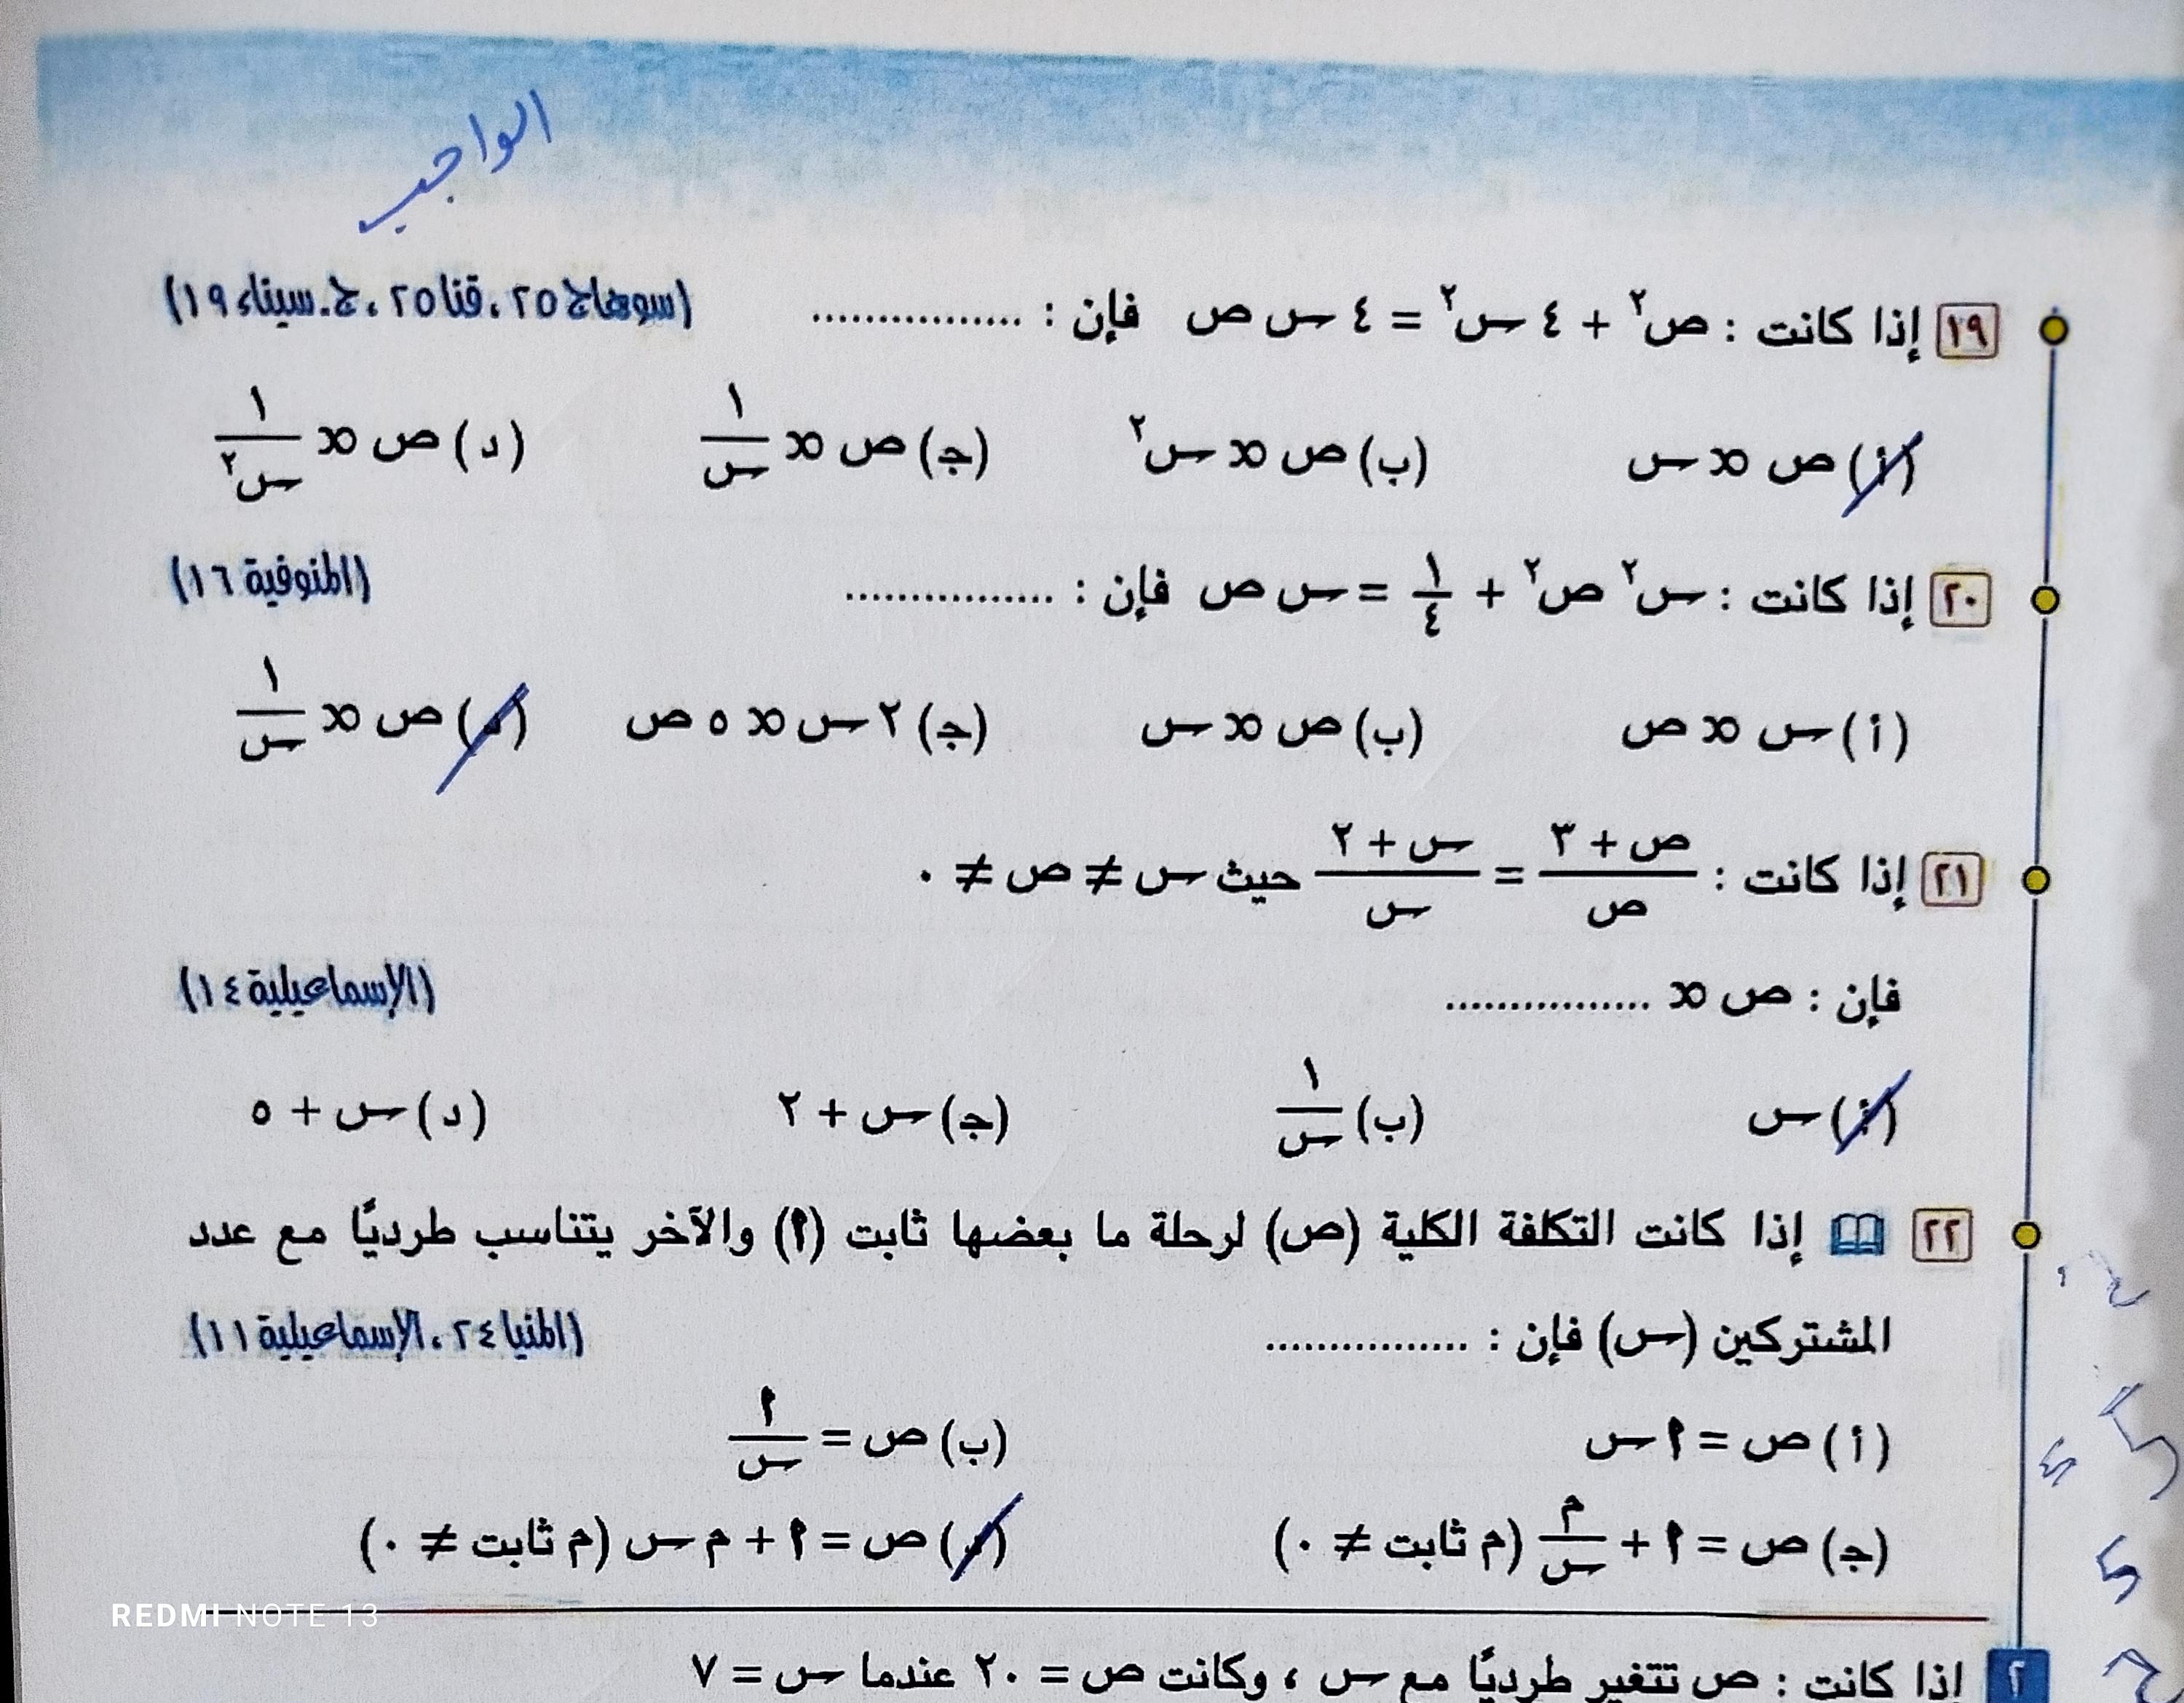 الواجب
١٩ إذا كانت : ص٢ + ٤ س٢ = ٤ س ص فإن : ................ (سوهاج ٢٥ ، قنا ٢٥ ، ج. سيناء ١٩)
(أ) ص ∝ س (ب) ص ∝ س٢ (ج) ص ∝ ١/س (د) ص ∝ ١/س٢
٢٠ إذا كانت : س٢ ص٢ + ١/٤ = س ص فإن : ................ (المنوفية ١٦)
(أ) س ∝ ص (ب) ص ∝ س (ج) ٢ س ∝ ٥ ص (د) ص ∝ ١/س
٢١ إذا كانت : (ص + ٣)/ص = (س + ٢)/س حيث س ≠ ص ≠ ٠
فإن : ص ∝ ................ (الإسماعيلية ١٤)
(أ) س (ب) ١/س (ج) س + ٢ (د) س + ٥
٢٢ إذا كانت التكلفة الكلية (ص) لرحلة ما بعضها ثابت (أ) والآخر يتناسب طرديًا مع عدد
المشتركين (س) فإن : ................ (المنيا ٢٤ ، الإسماعيلية ١١)
(أ) ص = أ س (ب) ص = أ/س
(ج) ص = أ + م/س (م ثابت ≠ ٠) (د) ص = أ + م س (م ثابت ≠ ٠)
REDMI NOTE 13
٢ إذا كانت : ص تتغير طرديًا مع س ، وكانت ص = ٢٠ عندما س = ٧